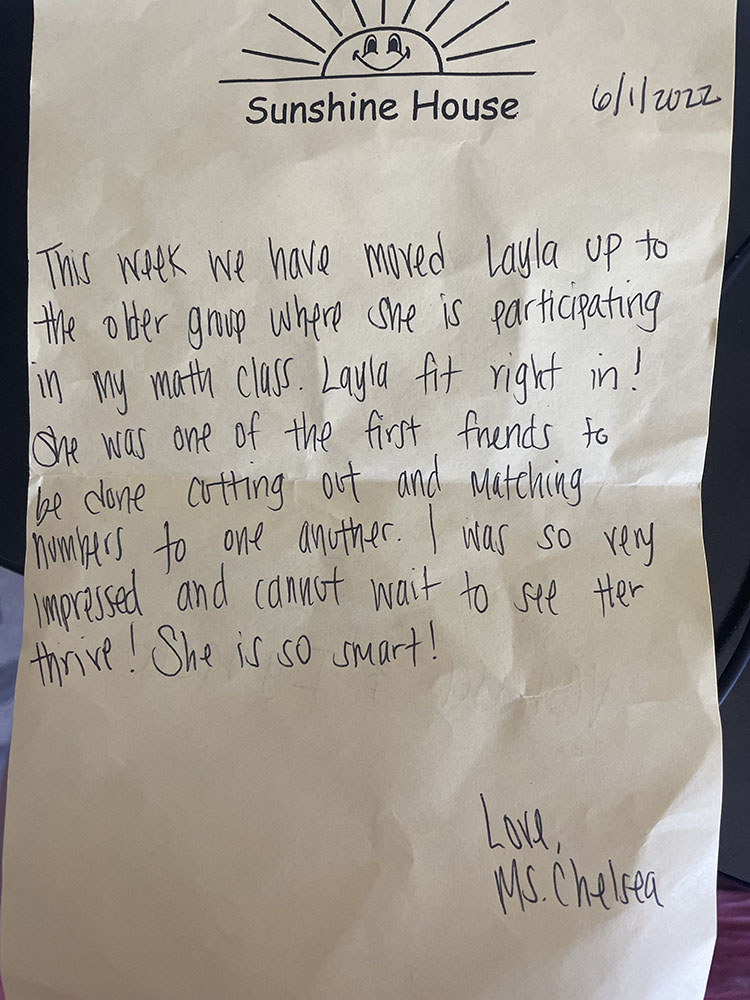 Sunshine House
6/1/2022
This week we have moved Layla up to
the older group where she is participating
in my math class. Layla fit right in!
She was one of the first friends to
be done cutting out and matching
numbers to one another. I was so very
impressed and cannot wait to see Her
thrive! She is so smart!
Love,
Ms. Chelsea